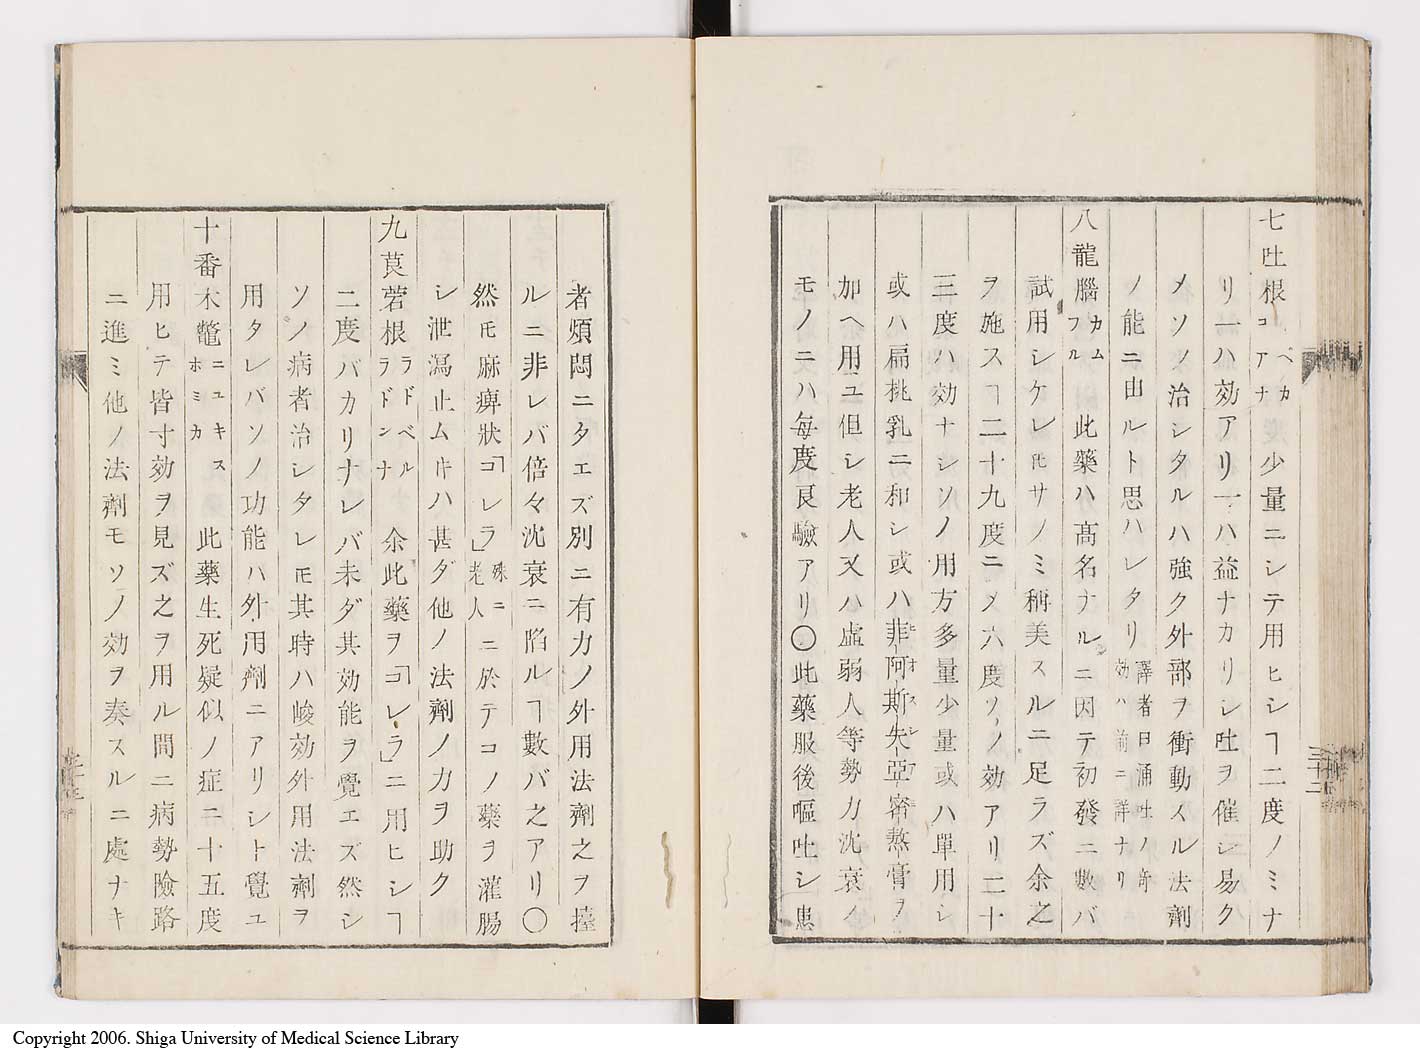 七吐根コアナペカ少量ニシテ用ヒシヿ二度ノミナ
リ一ハ効アリ一ハ益ナカリシ吐ヲ催シ易ク
メソノ治シタルハ強ク外部ヲ衝動スル法劑
ノ能ニ由ルト思ハレタリ譯者曰涌吐ノ奇効ハ前ニ詳ナリ
八龍腦カムフル此藥ハ方高名ナルニ因テ初發ニ數バ
試用シケレ𪜈サノミ稱美スルニ足ラズ余之
ヲ施スヿ二十九度ニメ六度ソノ効アリ二十
三度ハ効ナシソノ用方多量少量或ハ單用シ
或ハ扁桃乳ニ和シ或ハ非阿斯失亞密熬膏ヲ
加ヘ用ユ但シ老人又ハ虛弱人等勢力沈衰ノ
モノニハ每度良驗アリ〇此藥服後嘔吐シ患
者煩悶ニタエズ別ニ有力ノ外用法劑之ヲ擡
ルニ非レバ倍々沈衰ニ陷ルヿ數バ之アリ〇
然𪜈麻痺狀「コレラ」殊ニ老人ニ於テコノ藥ヲ灌腸
シ泄瀉止ムキハ甚ダ他ノ法劑ノ力ヲ助ク
九莨菪根ラドベルラドンナ余此藥ヲ「コレラ」ニ用ヒシヿ
二度バカリナレバ未ダ其効能ヲ覺エズ然シ
ソノ病者治シタレ𪜈其時ハ峻効外用法劑ヲ
用タレバソノ功能ハ外用劑ニアリシト覺ユ
十番木鼈ニユキスホミカ此藥生死疑似ノ症ニ十五度
用ヒテ皆寸効ヲ見ズ之ヲ用ル間ニ病勢險路
ニ進ミ他ノ法劑モソノ効ヲ奏スルニ處ナキ
Copyright 2006. Shiga University of Medical Science Library